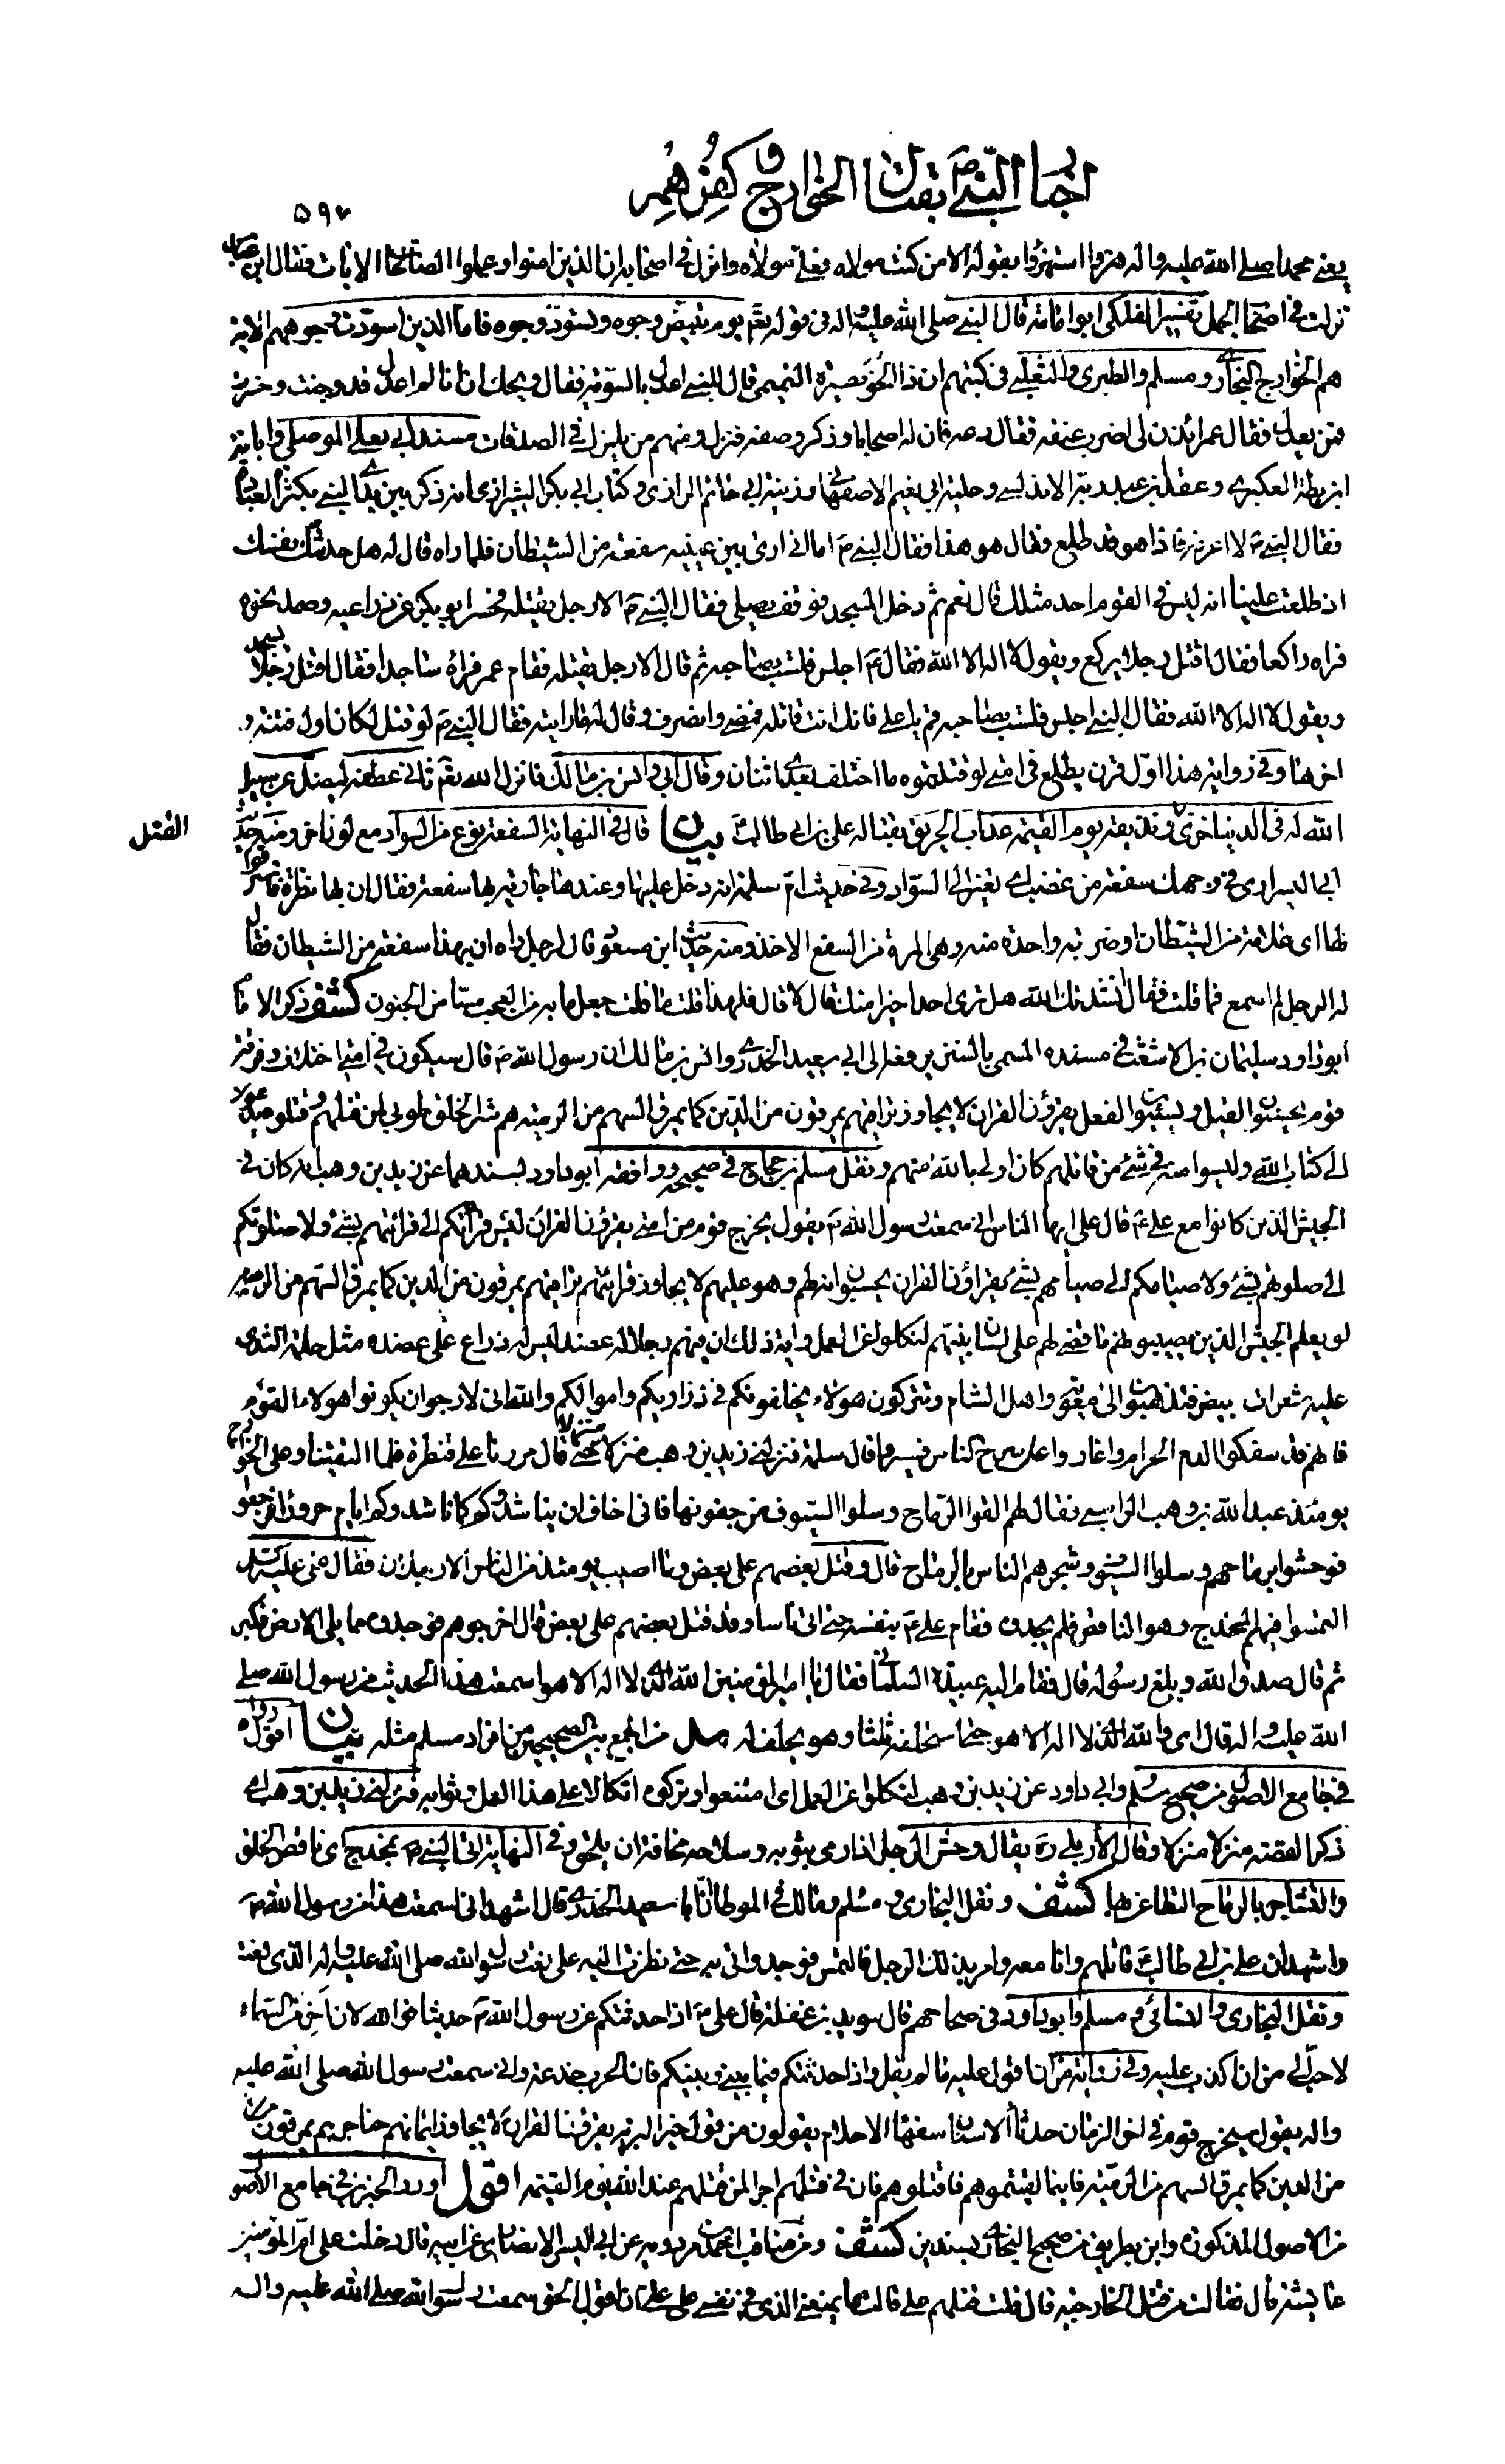 اخبار النبي ص بقتال الخوارج و كفرهم
۵۹۷
يعني محمدا صلى الله عليه واله هزوا استهزؤا بقوله الا من كنت مولاه فعلي مولاه وانزل في اصحابه ان الذين امنوا وعملوا الصالحات الايات فقال ابن عباس
نزلت في اصحاب الجمل تفسير الفلكي ابو امامة قال النبي صلى الله عليه واله في قوله تعم يوم تبيض وجوه وتسود وجوه فاما الذين اسودت وجوههم الاية
هم الخوارج البخاري ومسلم والطبري والثعلبي في كتبهم ان ذا الخويصرة التميمي قال للنبي اعدل بالسوية فقال ويحك ان انا لم اعدل قد وخبت وخسرت
فمن يعدل فقال عمر ائذن لي اضرب عنقه فقال دعه فان له اصحابا وذكر وصفه فنزل ومنهم من يلمزك في الصدقات مسند ابي يعلى الموصلي وابانة
ابن بطة العكبري وعقد بن عبد ربه الاندلسي وحلية ابي نعيم الاصفهاني وزينة ابي حاتم الرازي وكتاب ابي بكر الشيرازي انه ذكر بين يدي النبي بكثرة العبادة
فقال النبي ص لا اعرفه فاذا هو قد طلع فقال هو هذا فقال النبي ص اما اني ارى بين عينيه سفعة من الشيطان فلما راه قال له هل حدثتك نفسك
اذ طلعت علينا انه ليس في القوم احد مثلك قال نعم ثم دخل المسجد فوقف يصلي فقال النبي ص الا رجل يقتله فحسر ابو بكر عن ذراعيه وصمد نحوه
فراه راكعا فقال اقتل رجلا يركع ويقول لا اله الا الله فقال ع اجلس فلست بصاحبه ثم قال الا رجل يقتله فقام عمر فراه ساجدا فقال اقتل رجلا يسجد
ويقول لا اله الا الله فقال النبي اجلس فلست بصاحبه قم يا علي فانك انت قاتله فمضى وانصرف وقال له ما رايته فقال النبي ص لو قتل لكان اول فتنة و
اخرها وفي رواية هذا اول قرن يطلع في امتي لو قتلتموه ما اختلف بعدي اثنان وقال ابي وانس بن مالك فانزل الله تعم ثاني عطفه ليضل عن سبيل
الله له في الدنيا خزي ونذيقه يوم القيمة عذاب الحريق بقتاله علي بن ابي طالب ع بيان قال في النهاية السفعة نوع من السواد مع لون اخر ومنه حديث
القتل
ابي اليسر ارى في وجهك سفعة من غضب اي تغيرا الى السواد وفي حديث ام سلمة انه دخل عليها وعندها جارية بها سفعة فقال ان بها نظرة فاسترقوا
لها اي علامة من الشيطان او ضربة واحدة منه وهي المرة من السفع الاخذ ومنه حديث ابن مسعود قال لرجل راه ان بهذا سفعة من الشيطان فقال
له الرجل لم اسمع فما قلت فقال نشدتك الله هل ترى احدا خيرا منك قال لا قال فلهذا قلت ما قلت جعل ما به من العجب مسا من الجنون كشف ذكر الامام
ابو داود سليمان بن الاشعث في مسنده المسمى بالسنن يرفعه الى ابي سعيد الخدري وانس بن مالك ان رسول الله ص قال سيكون في امتي اختلاف وفرقة
قوم يحسنون القيل ويسيئون الفعل يقرؤن القران لا يجاوز تراقيهم يمرقون من الدين كما يمرق السهم من الرمية هم شر الخلق طوبى لمن قتلهم وقتلوه يدعون
الى كتاب الله وليسوا منه في شئ من قاتلهم كان اولى بالله منهم ونقل مسلم بن حجاج في صحيحه ووافقه ابو داود بسندهما عن زيد بن وهب انه كان في
الجيش الذين كانوا مع علي ع قال علي ايها الناس اني سمعت رسول الله ص يقول يخرج قوم من امتي يقرؤن القران ليس قرائتكم الى قرائتهم بشئ ولا صلوتكم
الى صلوتهم بشئ ولا صيامكم الى صيامهم بشئ يقراؤن القران يحسبون انه لهم وهو عليهم لا يجاوز قرائتهم تراقيهم يمرقون من الدين كما يمرق السهم من الرمية
لو يعلم الجيش الذين يصيبونهم ما قضى لهم على لسان نبيهم لنكلوا عن العمل واية ذلك ان فيهم رجلا له عضد ليس له ذراع على عضده مثل حلمة الثدي
عليه شعرات بيض فتذهبون الى معوية واهل الشام وتتركون هؤلاء يخلفونكم في ذراريكم واموالكم والله اني لارجو ان يكونوا هولاء القوم
فانهم قد سفكوا الدم الحرام واغاروا على سرح الناس فسيروا قال سلمة فنزلني زيد بن وهب منزلا منزلا حتى قال مررنا على قنطرة فلما التقينا وعلى الخوارج
يومئذ عبد الله بن وهب الراسبي فقال لهم القوا الرماح وسلوا السيوف من جفونها فاني اخاف ان يناشدوكم كما ناشدوكم ايام حروراء فرجعوا
فوحشوا برماحهم وسلوا السيوف وشجرهم الناس بالرماح قال وقتل بعضهم على بعض وما اصيب يومئذ من الناس الا رجلان فقال علي عليه السلام
التمسوا فيهم المخدج وهو الناقص فلم يجدوه فقام علي ع بنفسه حتى اتى ناسا وقد قتل بعضهم على بعض قال اخرجوهم فوجدوه مما يلي الارض فكبر
ثم قال صدق الله وبلغ رسوله قال فقام اليه عبيدة السلماني فقال يا امير المؤمنين الله الذي لا اله الا هو اسمعت هذا الحديث من رسول الله صلى
الله عليه واله قال اي والله الذي لا اله الا هو حتى استحلفه ثلثا وهو يحلف له مد من الجمع بين الصحيحين من افراد مسلم مثله بيان اقول رواه
في جامع الاصول من صحيح مسلم وابي داود عن زيد بن وهب لنكلوا عن العمل اي امتنعوا وتركوه اتكالا على هذا العمل وثوابه فنزلني زيد بن وهب اي
ذكر القصة منزلا منزلا وقال الاربلي ره يقال وحش الرجل اذا رمى بثوبه وسلاحه مخافة ان يلحق وفي النهاية اتى النبي ص بمخدج اي ناقص الخلق
والتشاجر بالرماح التطاعن بها كشف ونقل البخاري ومسلم ومالك في الموطا ان ابا سعيد الخدري قال اشهد اني سمعت هذا من رسول الله ص
واشهد ان علي بن ابي طالب ع قاتلهم وانا معه وامر بذلك الرجل فالتمس فوجد واتي به حتى نظرت اليه على نعت رسول الله صلى الله عليه واله الذي نعت
ونقل البخاري والنسائي ومسلم وابو داود في صحاحهم قال سويد بن غفلة قال علي ع اذا حدثتكم عن رسول الله ص حديثا فوالله لان اخر من السماء
لاحب الي من ان اكذب عليه وفي رواية من ان اقول عليه ما لم يقل واذا حدثتكم فيما بيني وبينكم فان الحرب خدعة واني سمعت رسول الله صلى الله عليه
واله يقول سيخرج قوم في اخر الزمان حدثاء الاسنان سفهاء الاحلام يقولون من قول خير البرية يقرؤن القران لا يجاوز ايمانهم حناجرهم يمرقون
من الدين كما يمرق السهم من الرمية فاينما لقيتموهم فاقتلوهم فان في قتلهم اجرا لمن قتلهم عند الله يوم القيمة اقول اورد الخبرين في جامع الاصو
من الاصول المذكورة وابن بطريق من صحيح البخاري بسندين كشف ومن مناقب احمد بن مردويه عن ابي اليسر الانصاري عن ابيه قال دخلت على ام المؤمنين
عايشة قال فقالت من قتل الخارجية قال قلت قتلهم علي قالت ما يمنعني الذي في نفسي على علي ان اقول الحق سمعت رسول الله صلى الله عليه واله